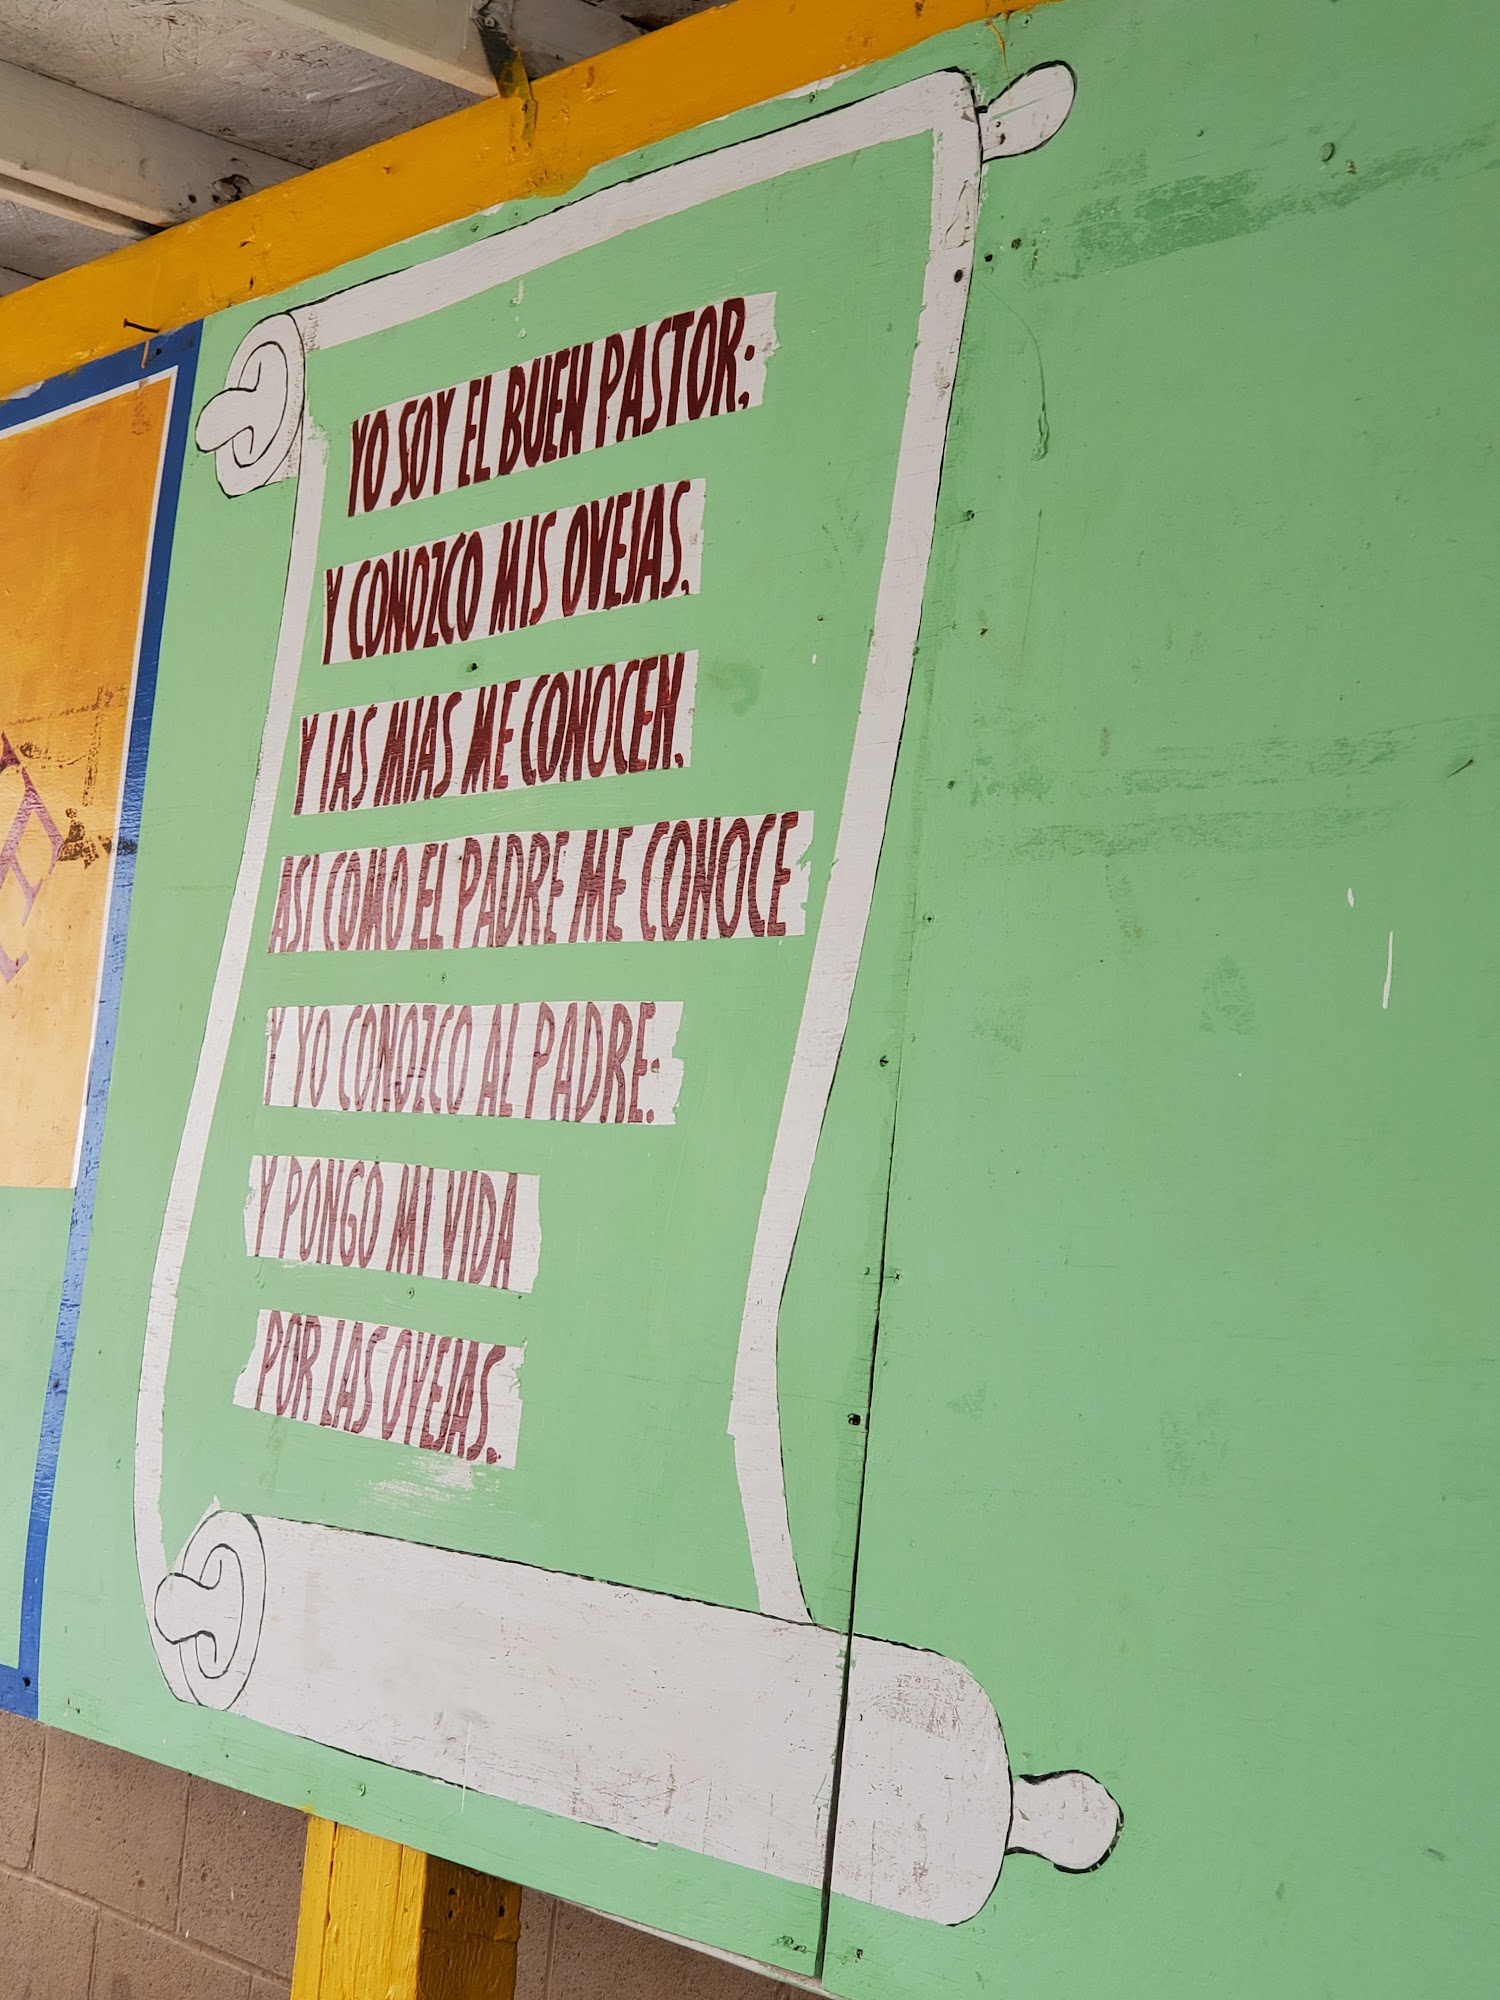 YO SOY EL BUEN PASTOR;
Y CONOZCO MIS OVEJAS,
Y LAS MIAS ME CONOCEN,
ASI COMO EL PADRE ME CONOCE
Y YO CONOZCO AL PADRE:
Y PONGO MI VIDA
POR LAS OVEJAS.